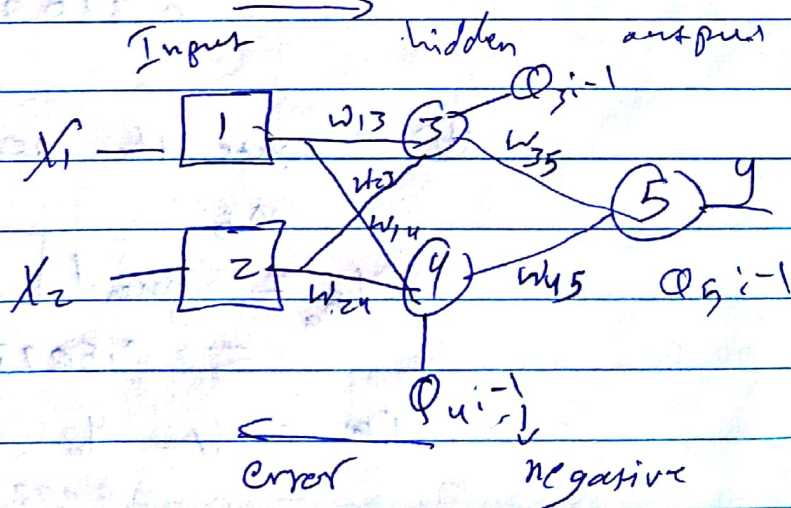 Input hidden output
X₁ 1 W13 3 Q3 i-1
W23 W35
W14 5 y
X₂ 2 W24 4 W45 Q5 i-1
Q4 i-1
error negative